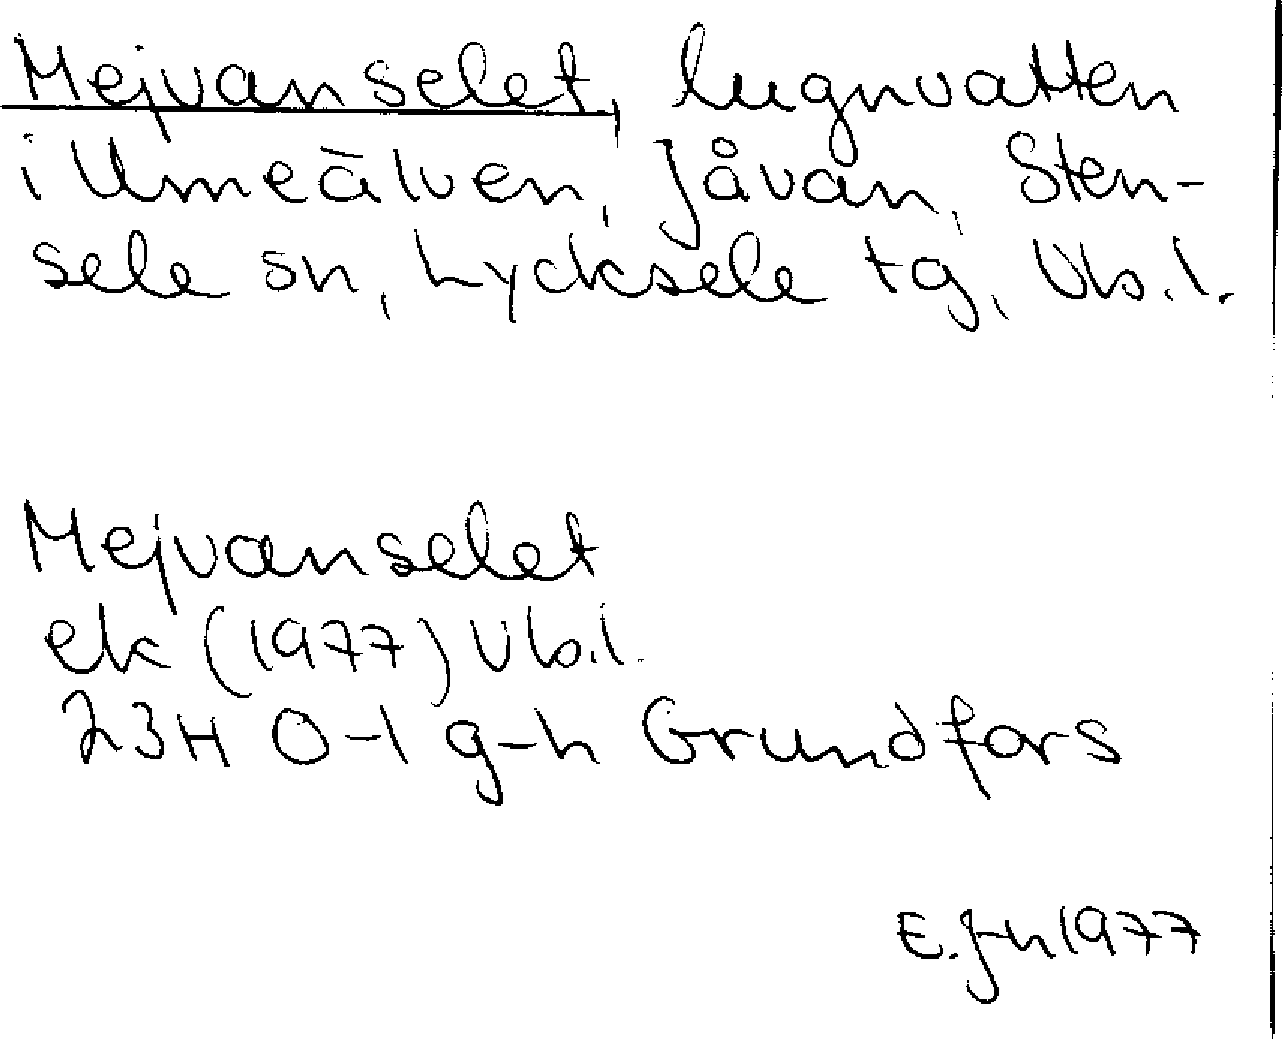 Mejvanselet, lugnvatten
i Umeälven, Jåvan, Sten-
sele sn, Lycksele tg, Vb.l.
Mejvanselet
ek (1977) Vb.l.
23H 0-1 g-h Grundfors
E. J-n 1977